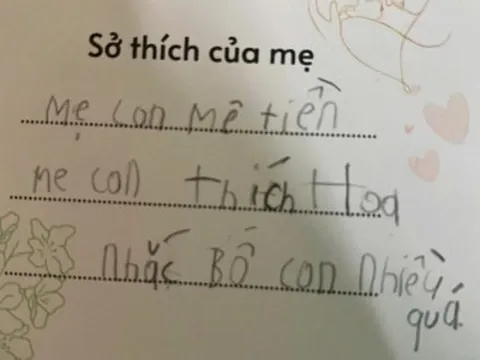 Sở thích của mẹ
Mẹ con mê tiền
mẹ con thích Hoa
Nhắc Bố con nhiều
quá